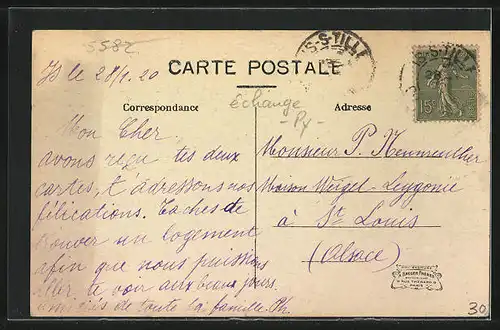 5582
Is le 28/1. 20
IS-S-TILLE
IS-S-TILLE
15c
CARTE POSTALE
Correspondance
échange
- Py -
Adresse
Mon Cher
avons reçu tes deux
cartes, t'adressons nos
félicitations. Taches de
trouver un logement
afin que nous puissions
aller te voir aux beaux jours.
amitiés de toute la famille. Ph.
Monsieur P.
Maison Weigel-Leygonie
à St Louis
(Alsace)
PARIS
30